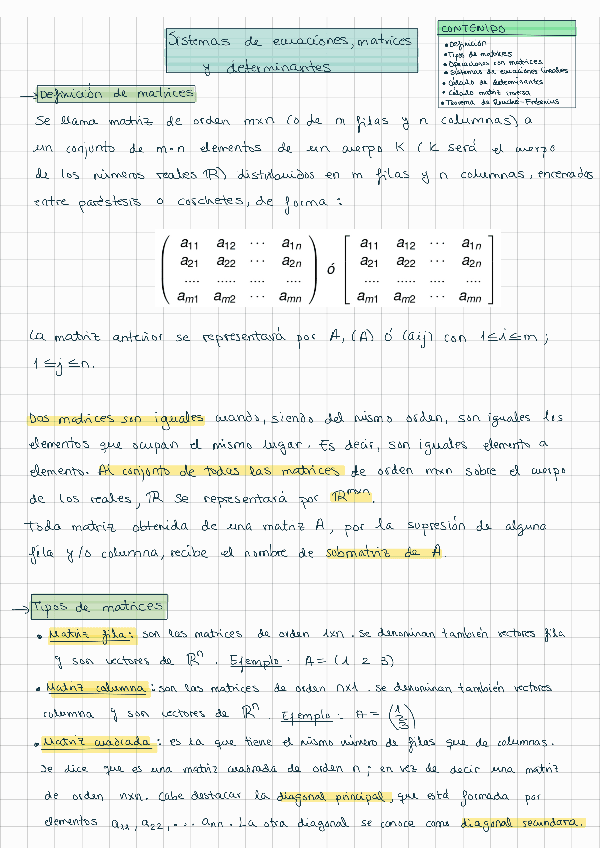 Sistemas de ecuaciones, matrices
y determinantes
CONTENIDO
• Definición
• Tipos de matrices
• Operaciones con matrices
• Sistemas de ecuaciones lineales
• Cálculo de determinantes
• Cálculo matriz inversa
• Teorema de Rouché-Frobenius
→ Definición de matrices
Se llama matriz de orden mxn (o de m filas y n columnas) a
un conjunto de m·n elementos de un cuerpo K (K será el cuerpo
de los números reales ℝ) distribuidos en m filas y n columnas, encerrados
entre paréstesis o corchetes, de forma:
( a11 a12 ··· a1n ) ó [ a11 a12 ··· a1n ]
( a21 a22 ··· a2n ) [ a21 a22 ··· a2n ]
( .... ..... ··· .... ) [ .... ..... ··· .... ]
( am1 am2 ··· amn ) [ am1 am2 ··· amn ]
La matriz anterior se representará por A, (A) ó (aij) con 1≤i≤m ;
1≤j≤n.
Dos matrices son iguales cuando, siendo del mismo orden, son iguales los
elementos que ocupan el mismo lugar. Es decir, son iguales elemento a
elemento. Al conjunto de todas las matrices de orden mxn sobre el cuerpo
de los reales, ℝ se representará por ℝmxn.
Toda matriz obtenida de una matriz A, por la supresión de alguna
fila y/o columna, recibe el nombre de submatriz de A.
→ Tipos de matrices
• Matriz fila: son las matrices de orden 1xn. Se denominan también vectores fila
y son vectores de ℝⁿ. Ejemplo: A = (1 2 3)
• Matriz columna: son las matrices de orden nx1. Se denominan también vectores
columna y son vectores de ℝⁿ. Ejemplo: A = (1 2 3)
• Matriz cuadrada: es la que tiene el mismo número de filas que de columnas.
Se dice que es una matriz cuadrada de orden n ; en vez de decir una matriz
de orden nxn. Cabe destacar la diagonal principal, que está formada por
elementos a11, a22, ... ann. La otra diagonal se conoce como diagonal secundara.